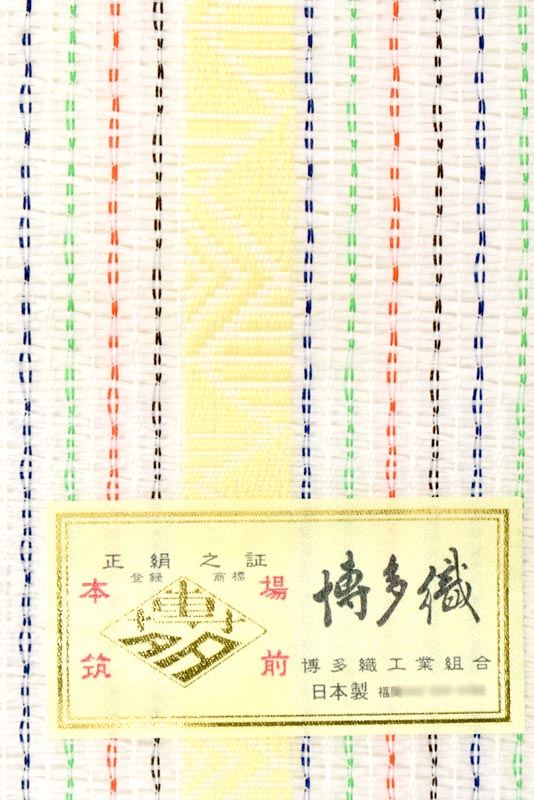 正絹之証
登録 商標
本場
筑前
博多
博多織
博多織工業組合
日本製 福岡